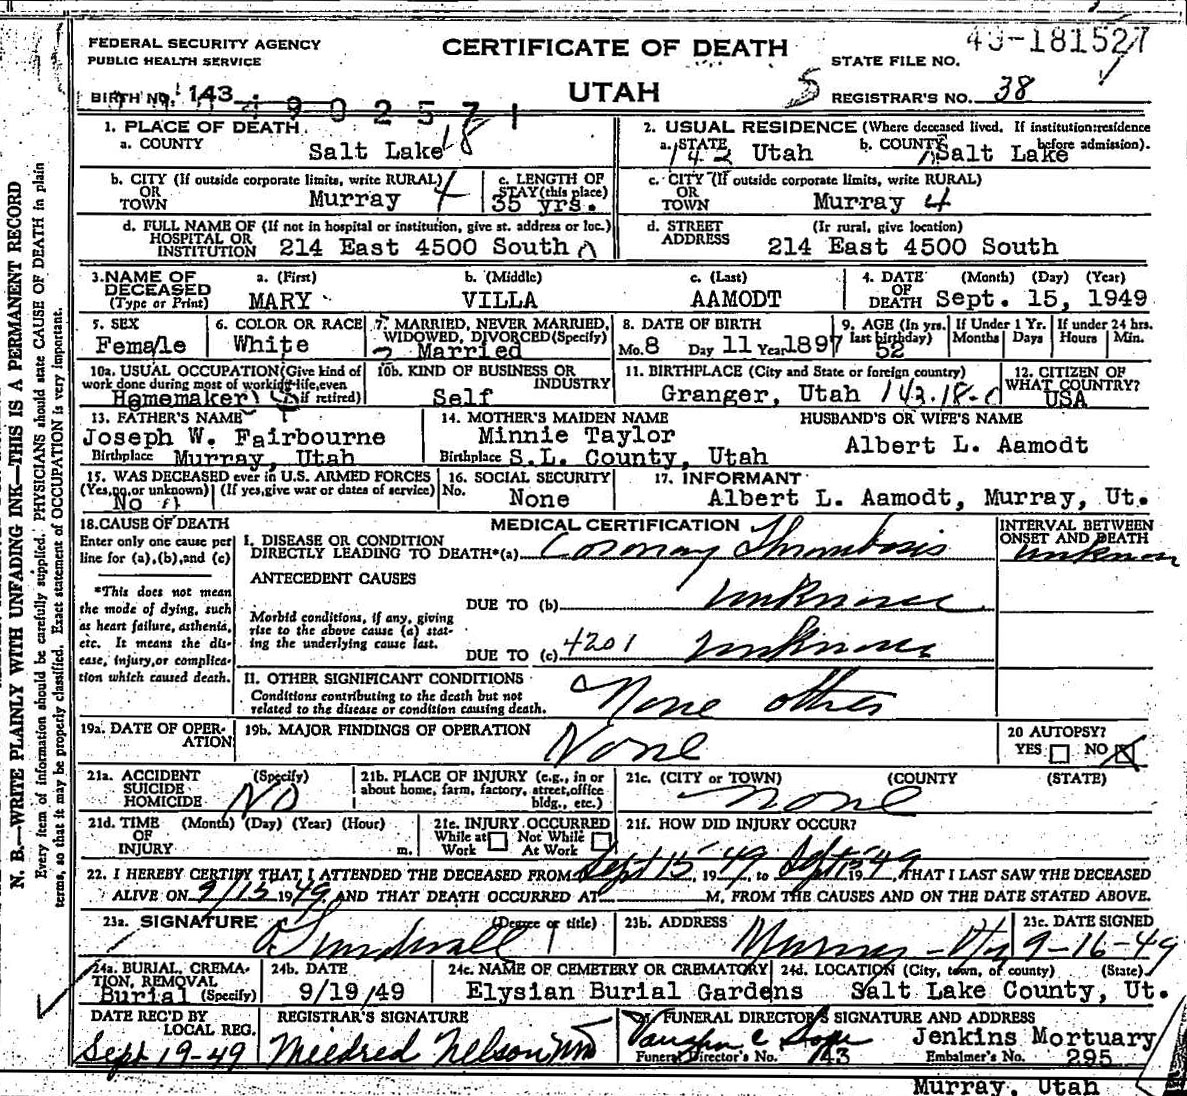 FEDERAL SECURITY AGENCY
PUBLIC HEALTH SERVICE
CERTIFICATE OF DEATH
UTAH
STATE FILE NO.
REGISTRAR'S NO. 38
BIRTH NO. 143
4902571
1. PLACE OF DEATH
a. COUNTY Salt Lake 18
2. USUAL RESIDENCE (Where deceased lived. If institution: residence before admission).
a. STATE 142 Utah b. COUNTY Salt Lake
b. CITY (If outside corporate limits, write RURAL)
OR
TOWN Murray 4
c. LENGTH OF
STAY (this place)
35 yrs.
c. CITY (If outside corporate limits, write RURAL)
OR
TOWN Murray 4
d. FULL NAME OF (If not in hospital or institution, give st. address or loc.)
HOSPITAL OR
INSTITUTION 214 East 4500 South
d. STREET (If rural, give location)
ADDRESS 214 East 4500 South
3. NAME OF DECEASED
(Type or Print)
a. (First) b. (Middle) c. (Last)
MARY VILLA AAMODT
4. DATE (Month) (Day) (Year)
OF
DEATH Sept. 15, 1949
5. SEX
Female
6. COLOR OR RACE
White
7. MARRIED, NEVER MARRIED,
WIDOWED, DIVORCED (Specify)
2 Married
8. DATE OF BIRTH
Mo. 8 Day 11 Year 1897
9. AGE (In yrs. last birthday)
52
If Under 1 Yr.
Months Days
If under 24 hrs.
Hours Min.
10a. USUAL OCCUPATION (Give kind of
work done during most of working life, even
if retired)
Homemaker
10b. KIND OF BUSINESS OR
INDUSTRY
Self
11. BIRTHPLACE (City and State or foreign country)
Granger, Utah 143.18-0
12. CITIZEN OF
WHAT COUNTRY?
USA
13. FATHER'S NAME
Joseph W. Fairbourne
Birthplace Murray, Utah
14. MOTHER'S MAIDEN NAME
Minnie Taylor
Birthplace S.L. County, Utah
HUSBAND'S OR WIFE'S NAME
Albert L. Aamodt
15. WAS DECEASED ever in U.S. ARMED FORCES
(Yes, no, or unknown) (If yes, give war or dates of service)
No
16. SOCIAL SECURITY
No. None
17. INFORMANT
Albert L. Aamodt, Murray, Ut.
18. CAUSE OF DEATH
Enter only one cause per
line for (a), (b), and (c)
*This does not mean
the mode of dying, such
as heart failure, asthenia,
etc. It means the dis-
ease, injury, or complica-
tion which caused death.
MEDICAL CERTIFICATION
INTERVAL BETWEEN
ONSET AND DEATH
I. DISEASE OR CONDITION
DIRECTLY LEADING TO DEATH* (a) Coronary Thrombosis unknown
ANTECEDENT CAUSES
DUE TO (b) unknown
Morbid conditions, if any, giving
rise to the above cause (a) stat-
ing the underlying cause last.
DUE TO (c) 4201 unknown
II. OTHER SIGNIFICANT CONDITIONS
Conditions contributing to the death but not
related to the disease or condition causing death.
None other
19a. DATE OF OPER-
ATION
19b. MAJOR FINDINGS OF OPERATION
None
20 AUTOPSY?
YES NO
21a. ACCIDENT (Specify)
SUICIDE
HOMICIDE NO
21b. PLACE OF INJURY (e.g., in or
about home, farm, factory, street, office
bldg., etc.)
21c. (CITY or TOWN) (COUNTY) (STATE)
none
21d. TIME (Month) (Day) (Year) (Hour)
OF
INJURY m.
21e. INJURY OCCURRED
While at Work Not While At Work
21f. HOW DID INJURY OCCUR?
22. I HEREBY CERTIFY THAT I ATTENDED THE DECEASED FROM Sept 15 49, 19 , to Sept 15 49 19 , THAT I LAST SAW THE DECEASED
ALIVE ON 9/15 1949, AND THAT DEATH OCCURRED AT M, FROM THE CAUSES AND ON THE DATE STATED ABOVE.
23a. SIGNATURE (Degree or title)
23b. ADDRESS
Murray
23c. DATE SIGNED
9-16-49
24a. BURIAL, CREMA-
TION, REMOVAL
(Specify)
Burial
24b. DATE
9/19/49
24c. NAME OF CEMETERY OR CREMATORY
Elysian Burial Gardens
24d. LOCATION (City, town, or county) (State)
Salt Lake County, Ut.
DATE REC'D BY
LOCAL REG.
Sept 19-49
REGISTRAR'S SIGNATURE
Mildred Nelson
FUNERAL DIRECTOR'S SIGNATURE AND ADDRESS
Vaughn C
Jenkins Mortuary
Funeral Director's No. 143 Embalmer's No. 295
Murray, Utah
N. B.—WRITE PLAINLY WITH UNFADING INK—THIS IS A PERMANENT RECORD
Every item of information should be carefully supplied. PHYSICIANS should state CAUSE OF DEATH in plain
terms, so that it may be properly classified. Exact statement of OCCUPATION is very important.